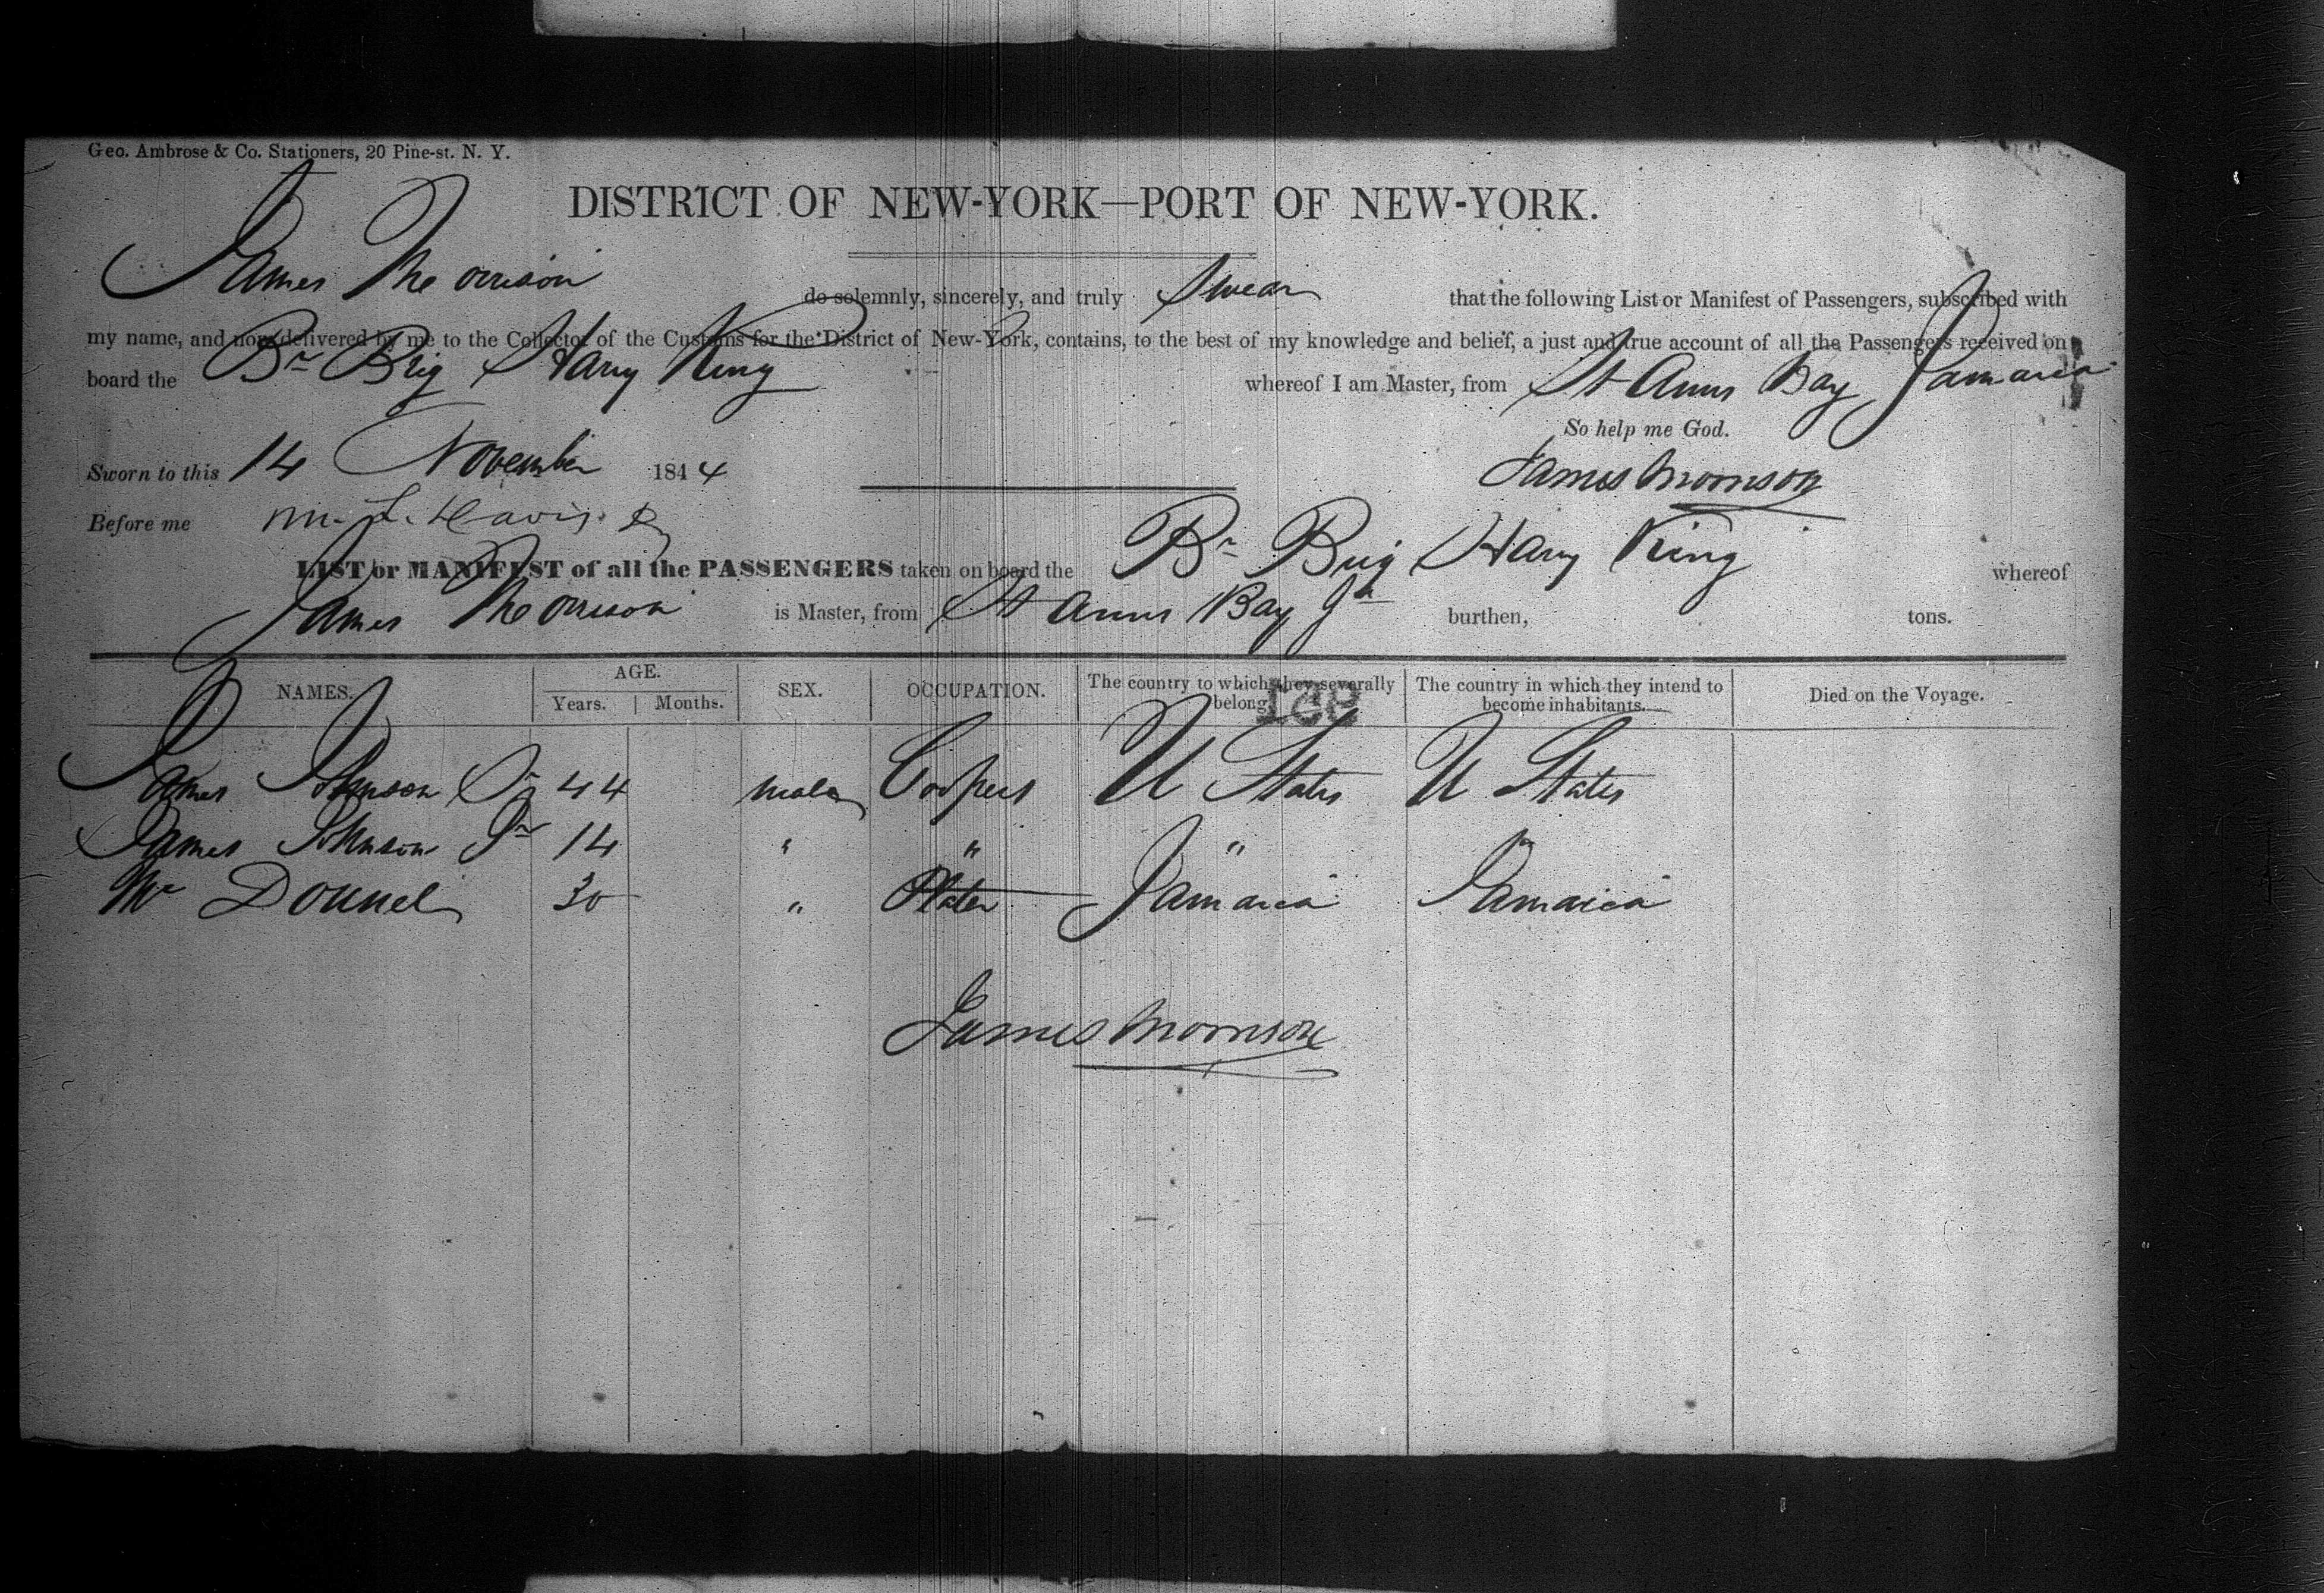 Geo. Ambrose & Co. Stationers, 20 Pine-st. N. Y.
DISTRICT OF NEW-YORK—PORT OF NEW-YORK.
James Morrison do solemnly, sincerely, and truly swear that the following List or Manifest of Passengers, subscribed with
my name, and now delivered by me to the Collector of the Customs for the District of New-York, contains, to the best of my knowledge and belief, a just and true account of all the Passengers received on
board the Br Brig Harry King whereof I am Master, from St Anns Bay Jamaica
So help me God.
Sworn to this 14 November 1844 James Morrison
Before me M. L. Davis
LIST or MANIFEST of all the PASSENGERS taken on board the Br Brig Harry King whereof
James Morrison is Master, from St Anns Bay Ja burthen, tons.
NAMES. AGE. Years. Months. SEX. OCCUPATION. The country to which they severally belong. The country in which they intend to become inhabitants. Died on the Voyage.
James Johnson Sr 44 male Coopers U States U States
James Johnson Jr 14 " " "
Mr Donnel 30 " Jamaica Jamaica
James Morrison